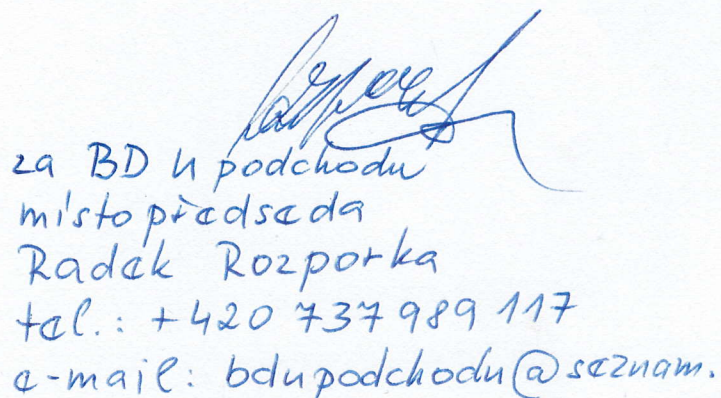 za BD U podchodu
místopředseda
Radek Rozporka
tel.: +420 737 989 117
e-mail: bdupodchodu@seznam.